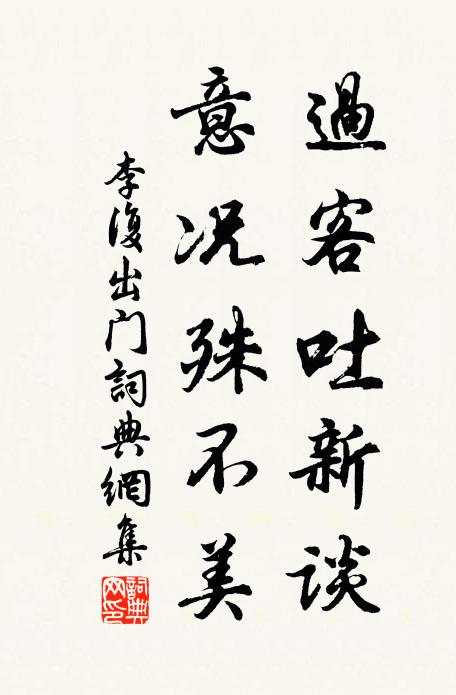 過客吐新談
意况殊不美
李復出门詞典網集
詞典网印